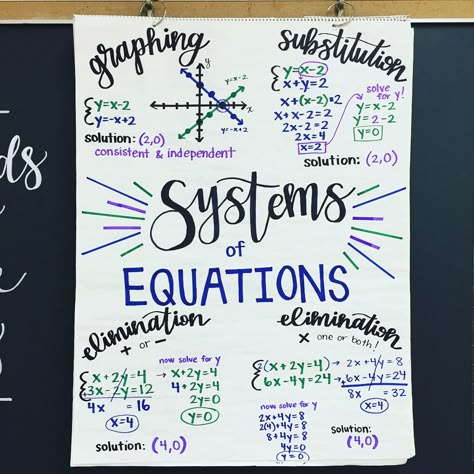 graphing
y=x-2
y=-x+2
solution: (2,0)
consistent & independent
y
x
y=x-2
y=-x+2
substitution
y=x-2
x+y=2
x+(x-2)=2
x+x-2=2
2x-2=2
2x=4
x=2
solve
for y!
y=x-2
y=2-2
y=0
solution: (2,0)
Systems
of
EQUATIONS
elimination
+ or -
x+2y=4
3x-2y=12
4x = 16
x=4
now solve for y
x+2y=4
4+2y=4
2y=0
y=0
solution: (4,0)
elimination
x one or both!
2(x+2y=4)
6x-4y=24
2x+4y=8
+6x-4y=24
8x = 32
x=4
now solve for y
2x+4y=8
2(4)+4y=8
8+4y=8
4y=0
y=0
solution:
(4,0)